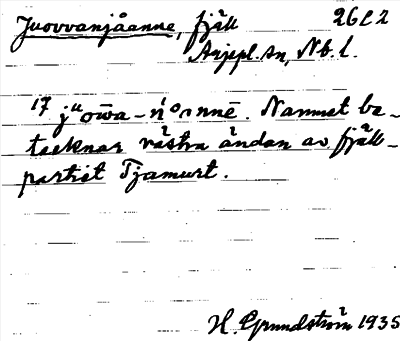 Juovvanjåanne, fjäll 26C2
Arjepl. sn, Nb. l.
17 jᵘow̄a-ńᵒnnē. Namnet be-
tecknar västra ändan av fjäll-
partiet Tjamurt.
H. Grundström 1935